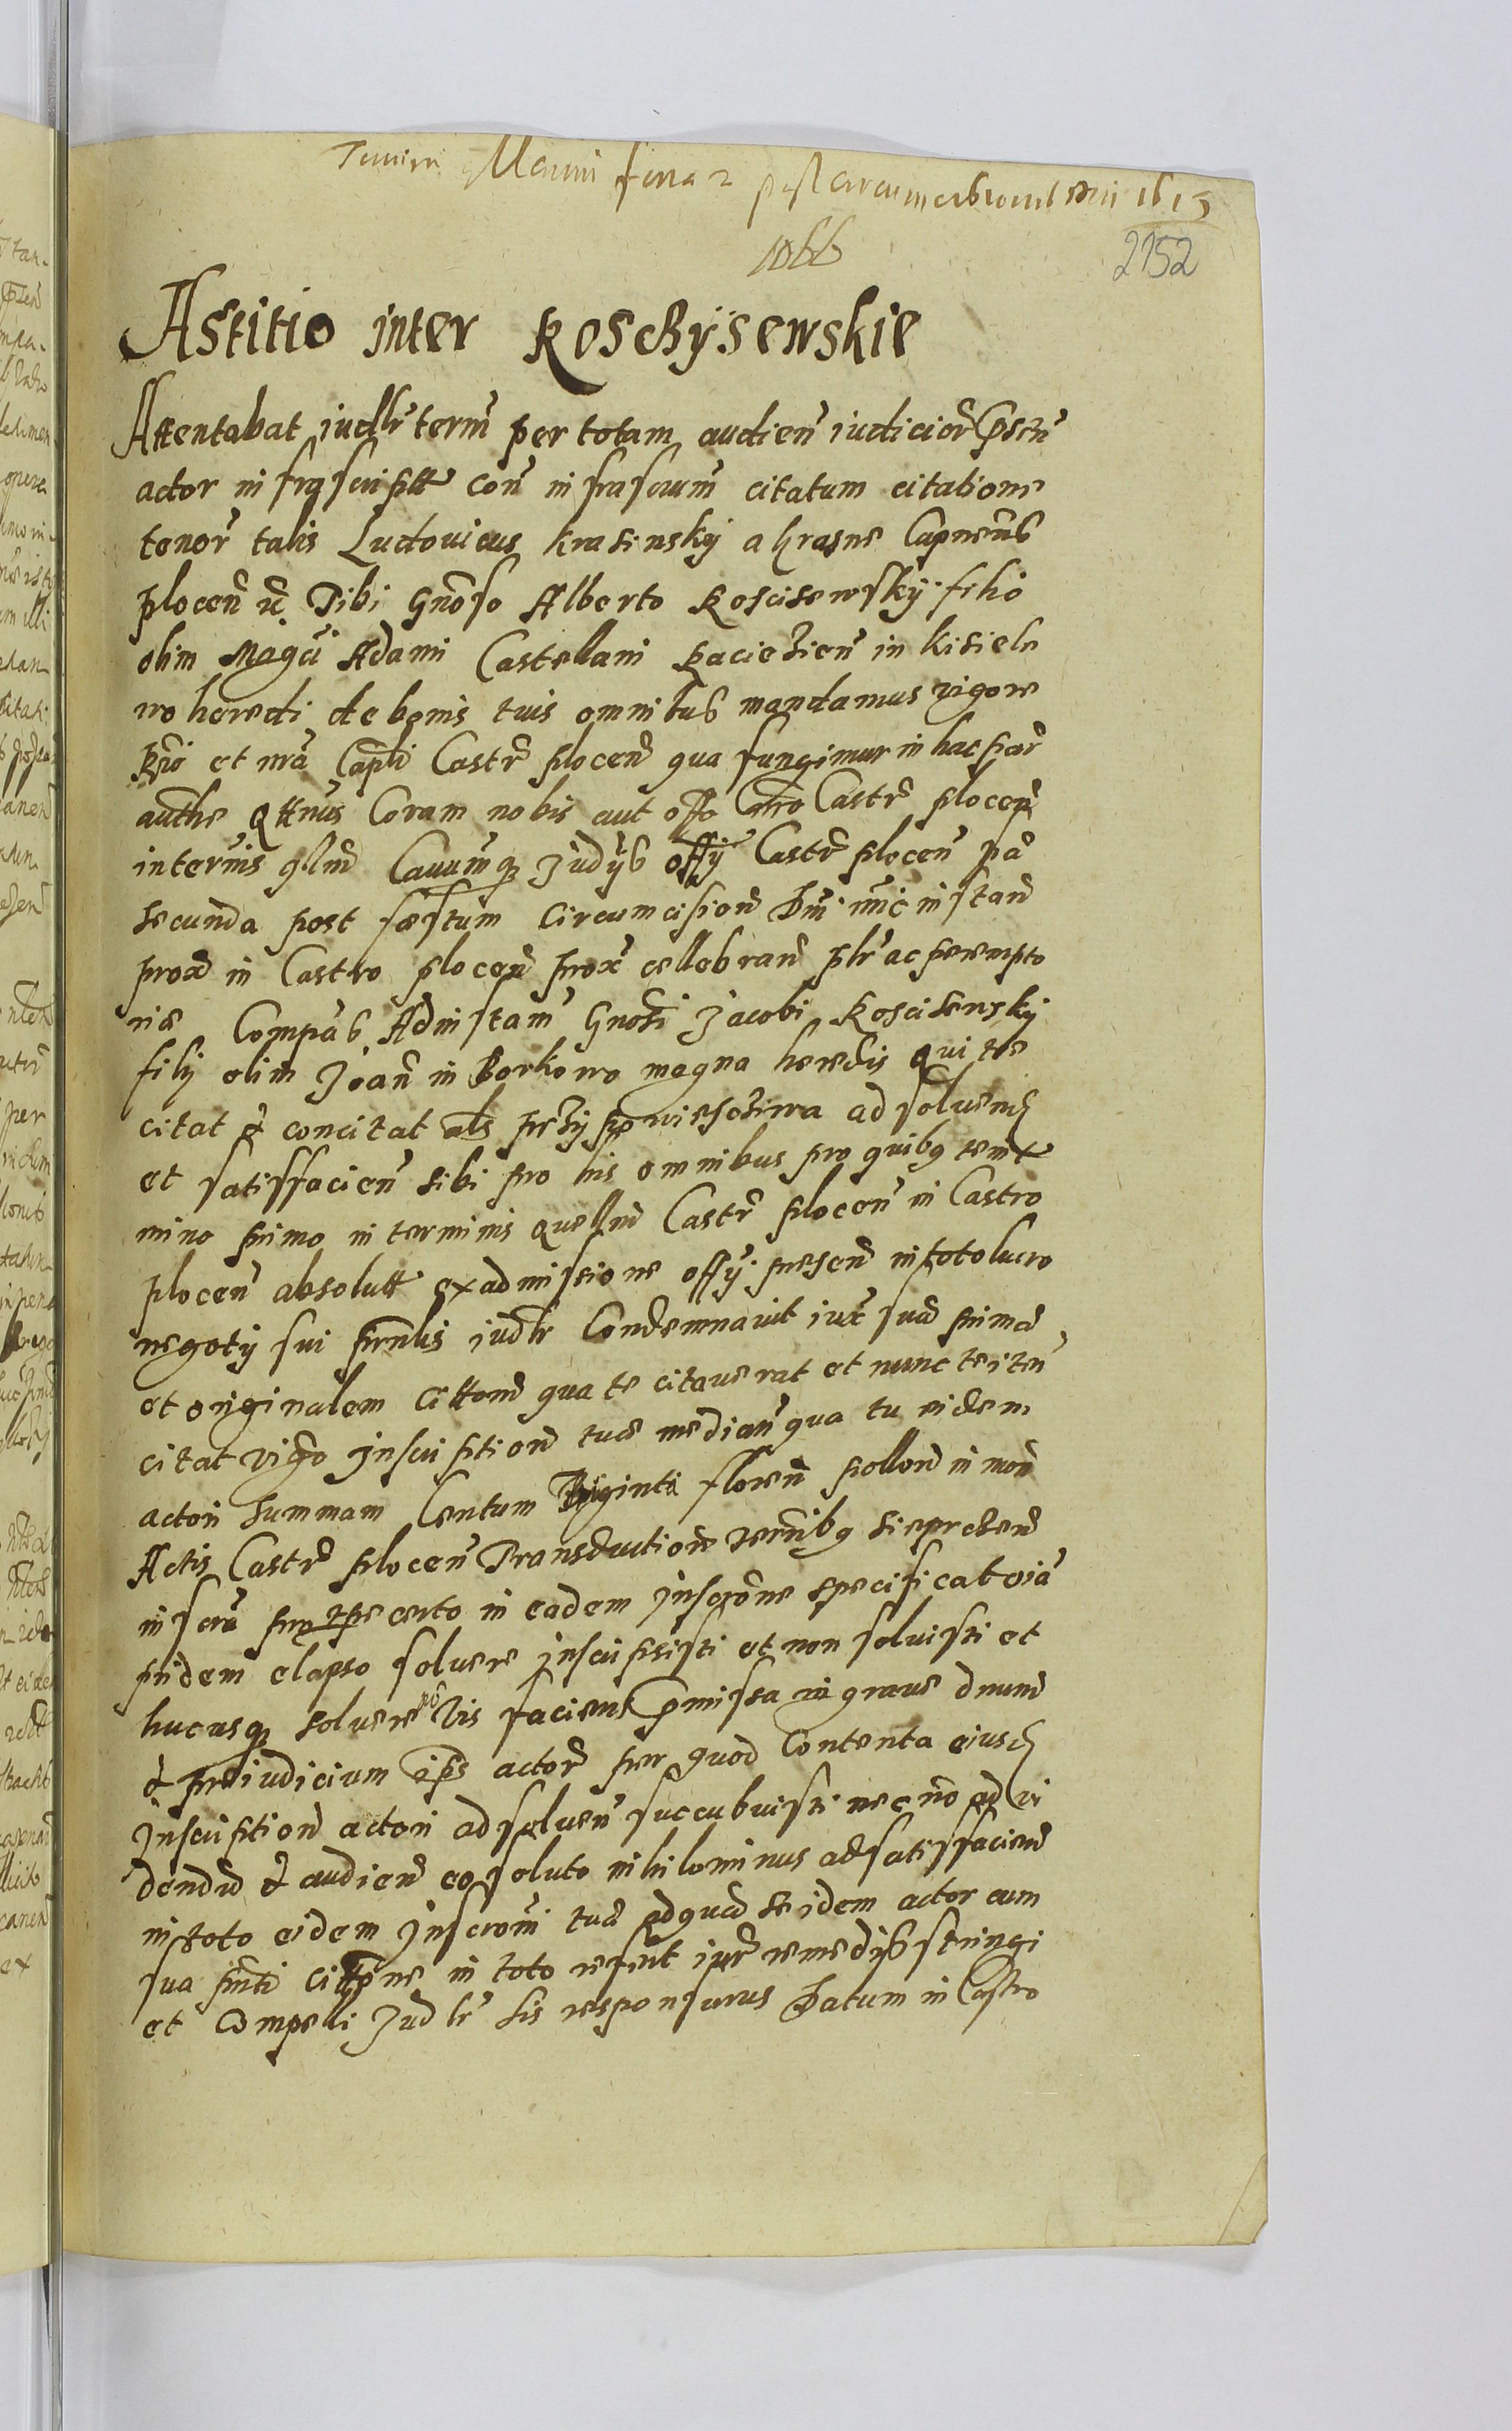 Termini Manni feria 2 post circumcisionis Dni 1615
1066
2152
Astitio inter Roschÿsewskie
Attentabat iudlr term per totam audien iudicior psen
actor infrascriptt con infrascrum citatum citatione
tenor talis Ludovicus Krasinskÿ a Krasne Capneus
plocen &c Tibi Gnoso Alberto Roscisewskÿ filio
olim Magci Adami Castellani Raciezien in Kisiele
wo heredi de bonis tuis omnibus mandamus vigore
Rpo et nra Capli Castr plocen qua fungimur in hac par
authe Qttnus Coram nobis aut offo Castr plocen
in termis qllm Cauumq Judÿs offÿ Castr plocen pa
secunda post festum Circumcision Dni nunc instan
prox in Castro plocen prox cellebran plr ac perempto
rie Compas Adinstam Gnosi Jacobi Roscisewskÿ
filÿ olim Joan in Borkowo magna heredis qui te
citat & concitat als prziÿpowiesczenia ad solven
et satisfacien sibi pro his omnibus pro quibq ter
mino primo in terminis quellm Castr plocen in Castro
plocen absolutt ex admissione offÿ presen in toto lucro
negotÿ sui prntis iudlr Condemnavit iux sua prima
et originalem cittone qua te citaverat et nunc te iten
citat vigo inscription tua median qua tu eidem
actori summam Centum Triginta floren pollon in mon
Actis Castr plocen Transduction termibq sieprdzen
inscra pro tpe certo in eadem Inscrone specificat via
pridem elapso solvere inscripsisti et non solvisti et
hucusq solvere no vis faciens pmissa in grave dnum
& preiudicium ips actor per quod Contenta eiusd
inscription actori ad solven succubuisti nec no ad vi
dendu & audien eo soluto nihilominus ad satisfacien
in toto eidem inscrom tua ad qua se idem actor cum
sua prnti cittone in toto refert iur remedÿs stringi
et Compelli Judlr sis responsurus Datum in Castro